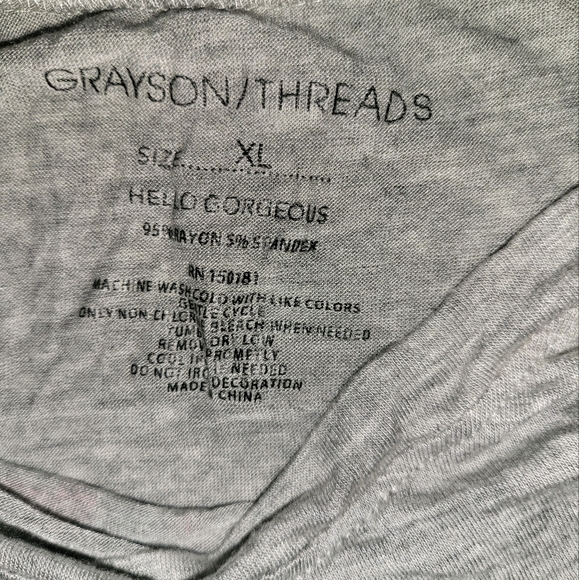 GRAYSON/THREADS
SIZE..... XL .......
HELLO GORGEOUS
95% RAYON 5% SPANDEX
RN 150181
MACHINE WASH COLD WITH LIKE COLORS
GENTLE CYCLE
ONLY NON-CHLORINE BLEACH WHEN NEEDED
TUMBLE DRY LOW
REMOVE PROMPTLY
COOL IRON IF NEEDED
DO NOT IRON DECORATION
MADE IN CHINA